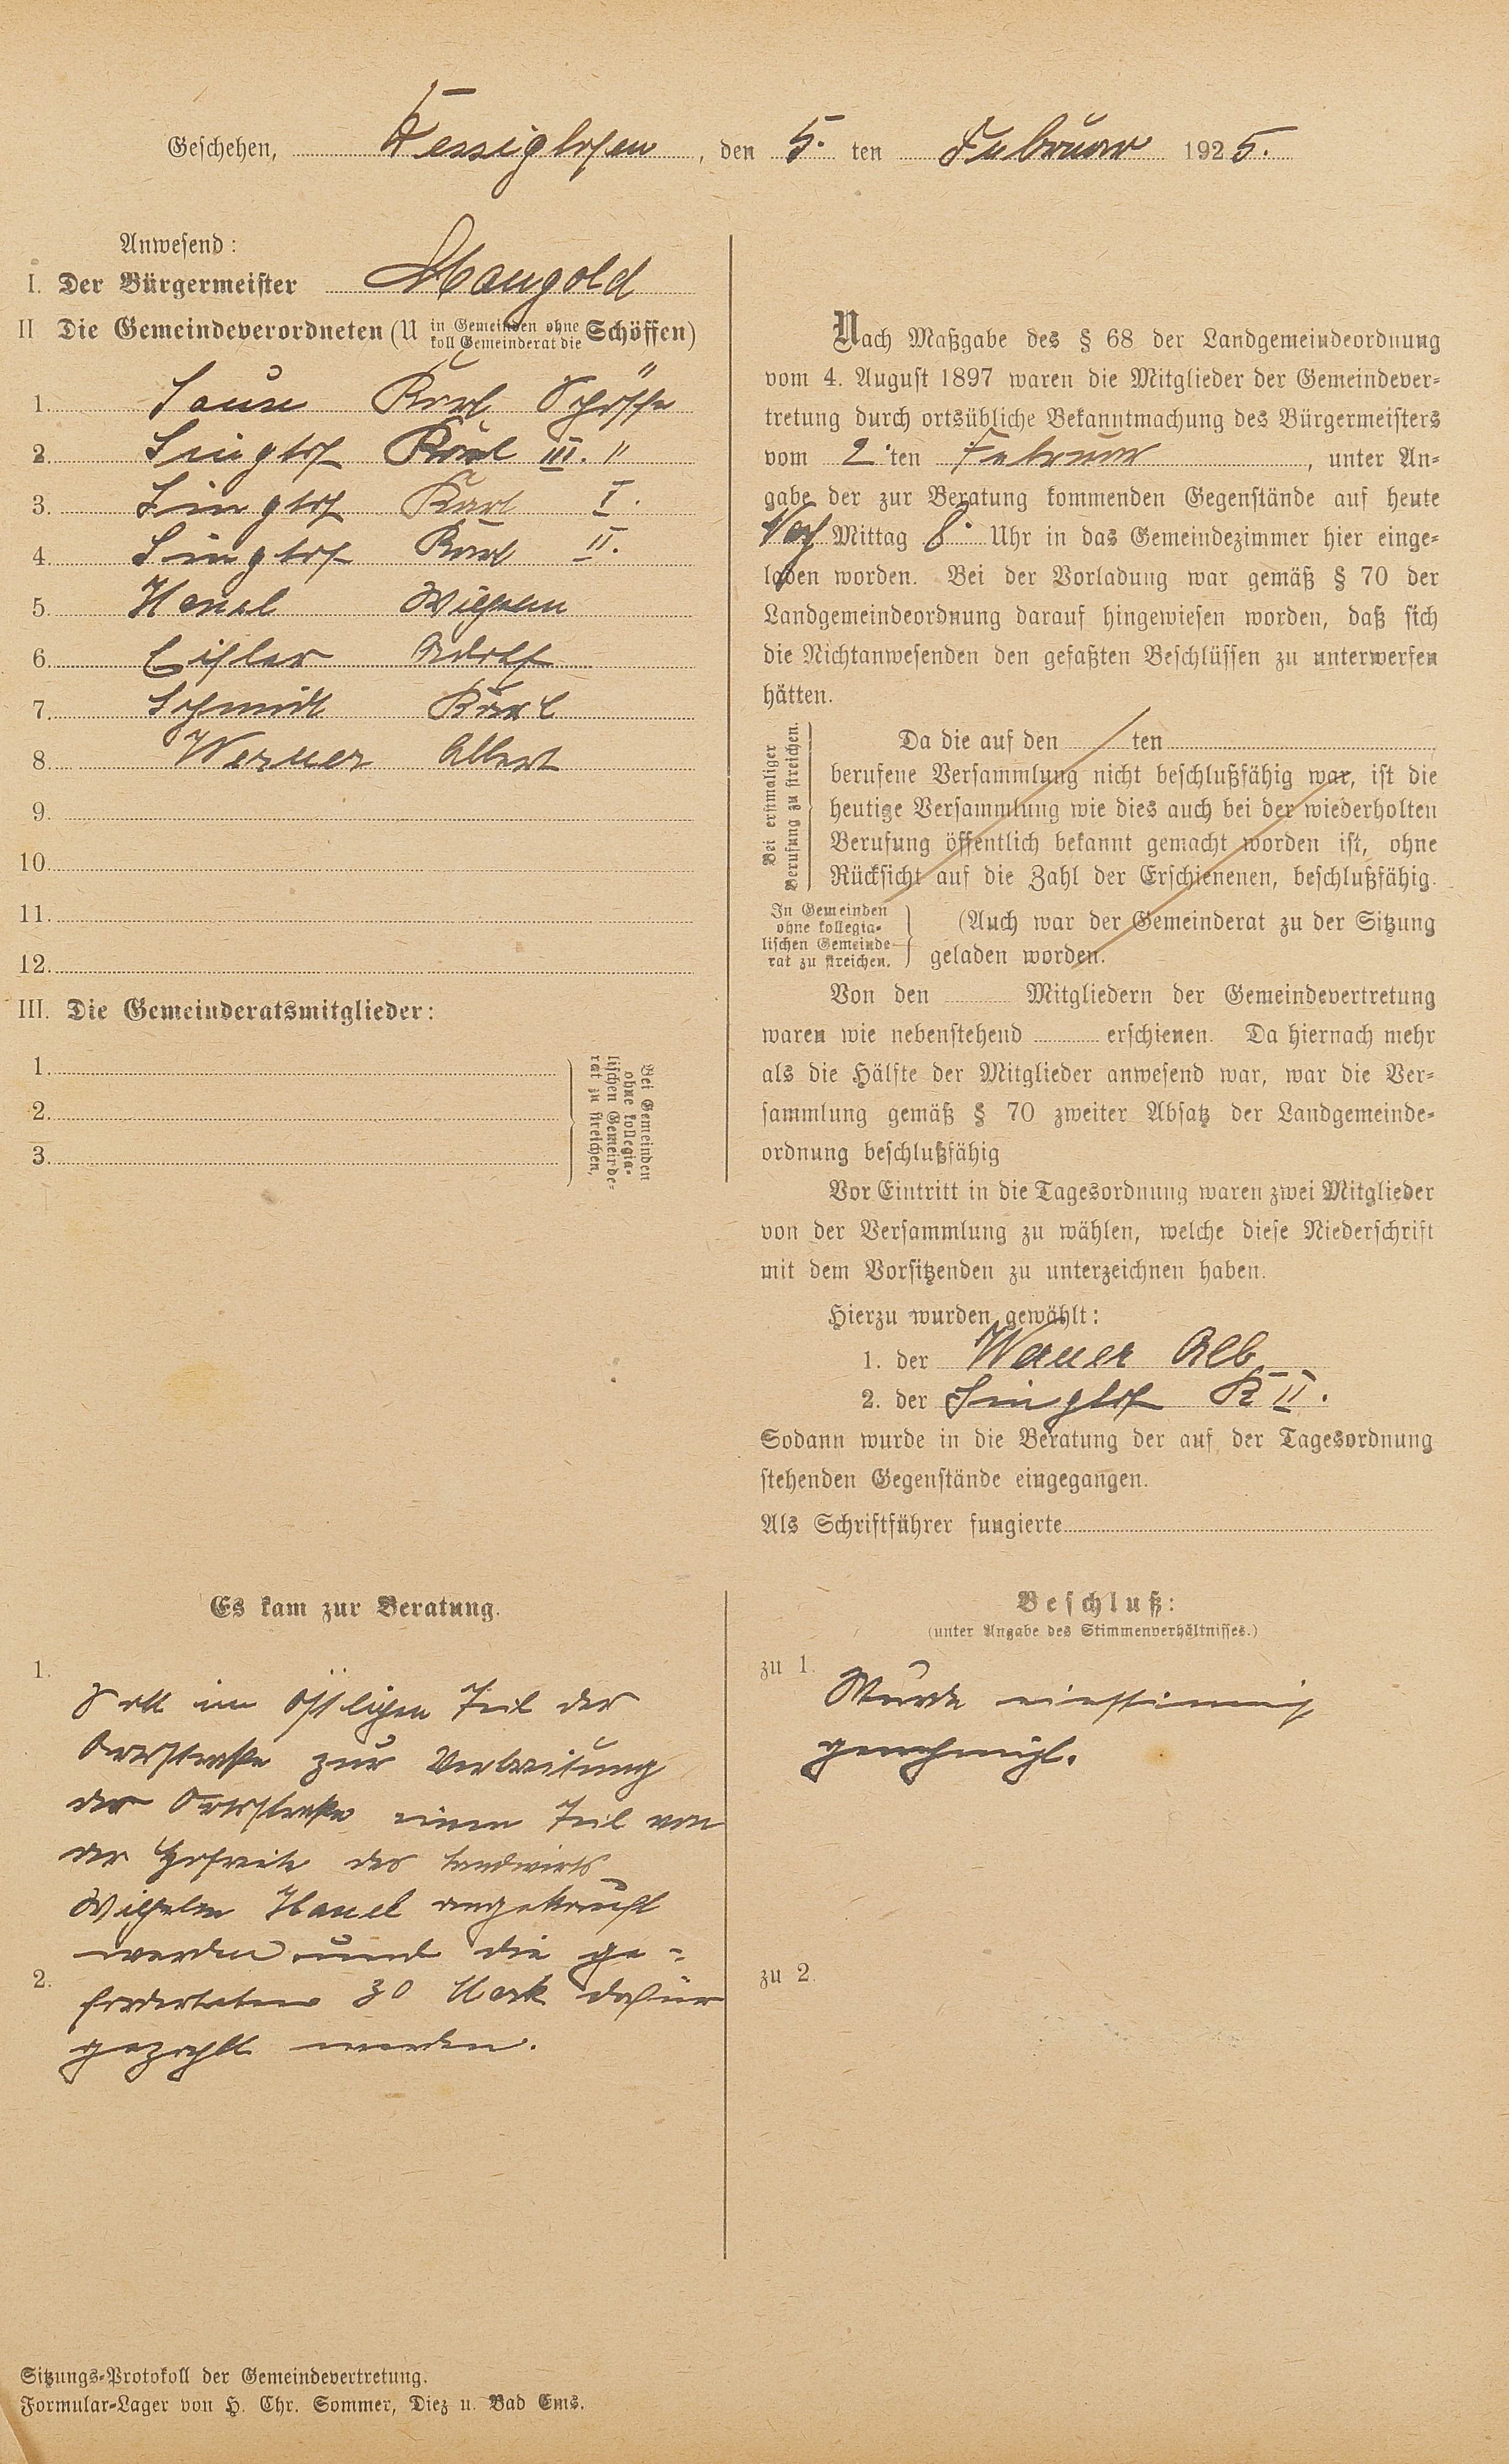 Geschehen, Dessighofen, den 5. ten Februar 1925.
Anwesend:
I. Der Bürgermeister Mangold
II Die Gemeindeverordneten (U in Gemeinden ohne koll Gemeinderat die Schöffen)
1. Karl Schöffe
2. Singhof Karl III. "
3. Singhof Karl I.
4. Singhof Karl II.
5. Hanel Wilhelm
6. Adolf
7. Schmidt Karl
8. Werner Albert
9.
10.
11.
12.
III. Die Gemeinderatsmitglieder:
1.
2.
3.
Bei Gemeinden
ohne kollegia-
lischen Gemeinde-
rat zu streichen.
Nach Maßgabe des § 68 der Landgemeindeordnung
vom 4. August 1897 waren die Mitglieder der Gemeindever-
tretung durch ortsübliche Bekanntmachung des Bürgermeisters
vom 2.ten Februar, unter An-
gabe der zur Beratung kommenden Gegenstände auf heute
Nach Mittag 8. Uhr in das Gemeindezimmer hier einge-
laden worden. Bei der Vorladung war gemäß § 70 der
Landgemeindeordnung darauf hingewiesen worden, daß sich
die Nichtanwesenden den gefaßten Beschlüssen zu unterwerfen
hätten.
Bei erstmaliger
Berufung zu streichen.
Da die auf den ten
berufene Versammlung nicht beschlußfähig war, ist die
heutige Versammlung wie dies auch bei der wiederholten
Berufung öffentlich bekannt gemacht worden ist, ohne
Rücksicht auf die Zahl der Erschienenen, beschlußfähig.
In Gemeinden
ohne kollegia-
lischen Gemeinde-
rat zu streichen.
(Auch war der Gemeinderat zu der Sitzung
geladen worden.
Von den Mitgliedern der Gemeindevertretung
waren wie nebenstehend erschienen. Da hiernach mehr
als die Hälfte der Mitglieder anwesend war, war die Ver-
sammlung gemäß § 70 zweiter Absatz der Landgemeinde-
ordnung beschlußfähig
Vor Eintritt in die Tagesordnung waren zwei Mitglieder
von der Versammlung zu wählen, welche diese Niederschrift
mit dem Vorsitzenden zu unterzeichnen haben.
Hierzu wurden gewählt:
1. der Werner Alb
2. der Singhof K II.
Sodann wurde in die Beratung der auf der Tagesordnung
stehenden Gegenstände eingegangen.
Als Schriftführer fungierte
Es kam zur Beratung.
1.
Soll im östlichen Teil der
Ortsstraße zur Verbreitung
der Ortsstraße einen Teil von
der Hofreite des Landwirts
Wilhelm Hanel angekauft
werden und die ge-
2. forderten 30 Mark dafür
gezahlt werden.
Beschluß:
(unter Angabe des Stimmenverhältnisses.)
zu 1.
Wurde einstimmig
genehmigt.
zu 2.
Sitzungs-Protokoll der Gemeindevertretung.
Formular-Lager von H. Chr. Sommer, Diez u. Bad Ems.